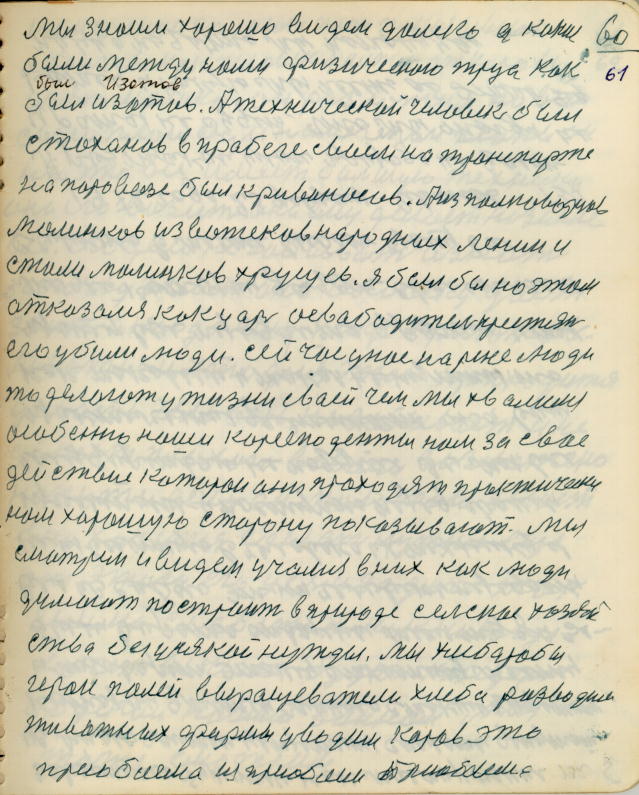 мы знаим хорошо видем далеко а каки 60
были между нами физического труа как 61
был Изотов
был изотов. А технической человек был
стоханов в прабеге своем на транспорте
на паровозе был кривонасов. А из полководцов
малинков из вотеков народных ленин и
стали малинков хрущев. я был бы но этом
отказался как царя освабадителя крестян
его убили люди. сей час у нас на реке люди
то делают у жизни своей чем мы хвалимя
особенно наши кореподенты нам за свое
действие которои они проходят практически
нам хорошую сторону показывают. мы
смотрим и видем учамия в них как люди
думают построит в природе селское хозяй
ства без усякой нужды. мы хлибаробы
герои полей выращеватели хлеба разводим
животных фермы уводим коров это
приоблема из приоблем приоблема